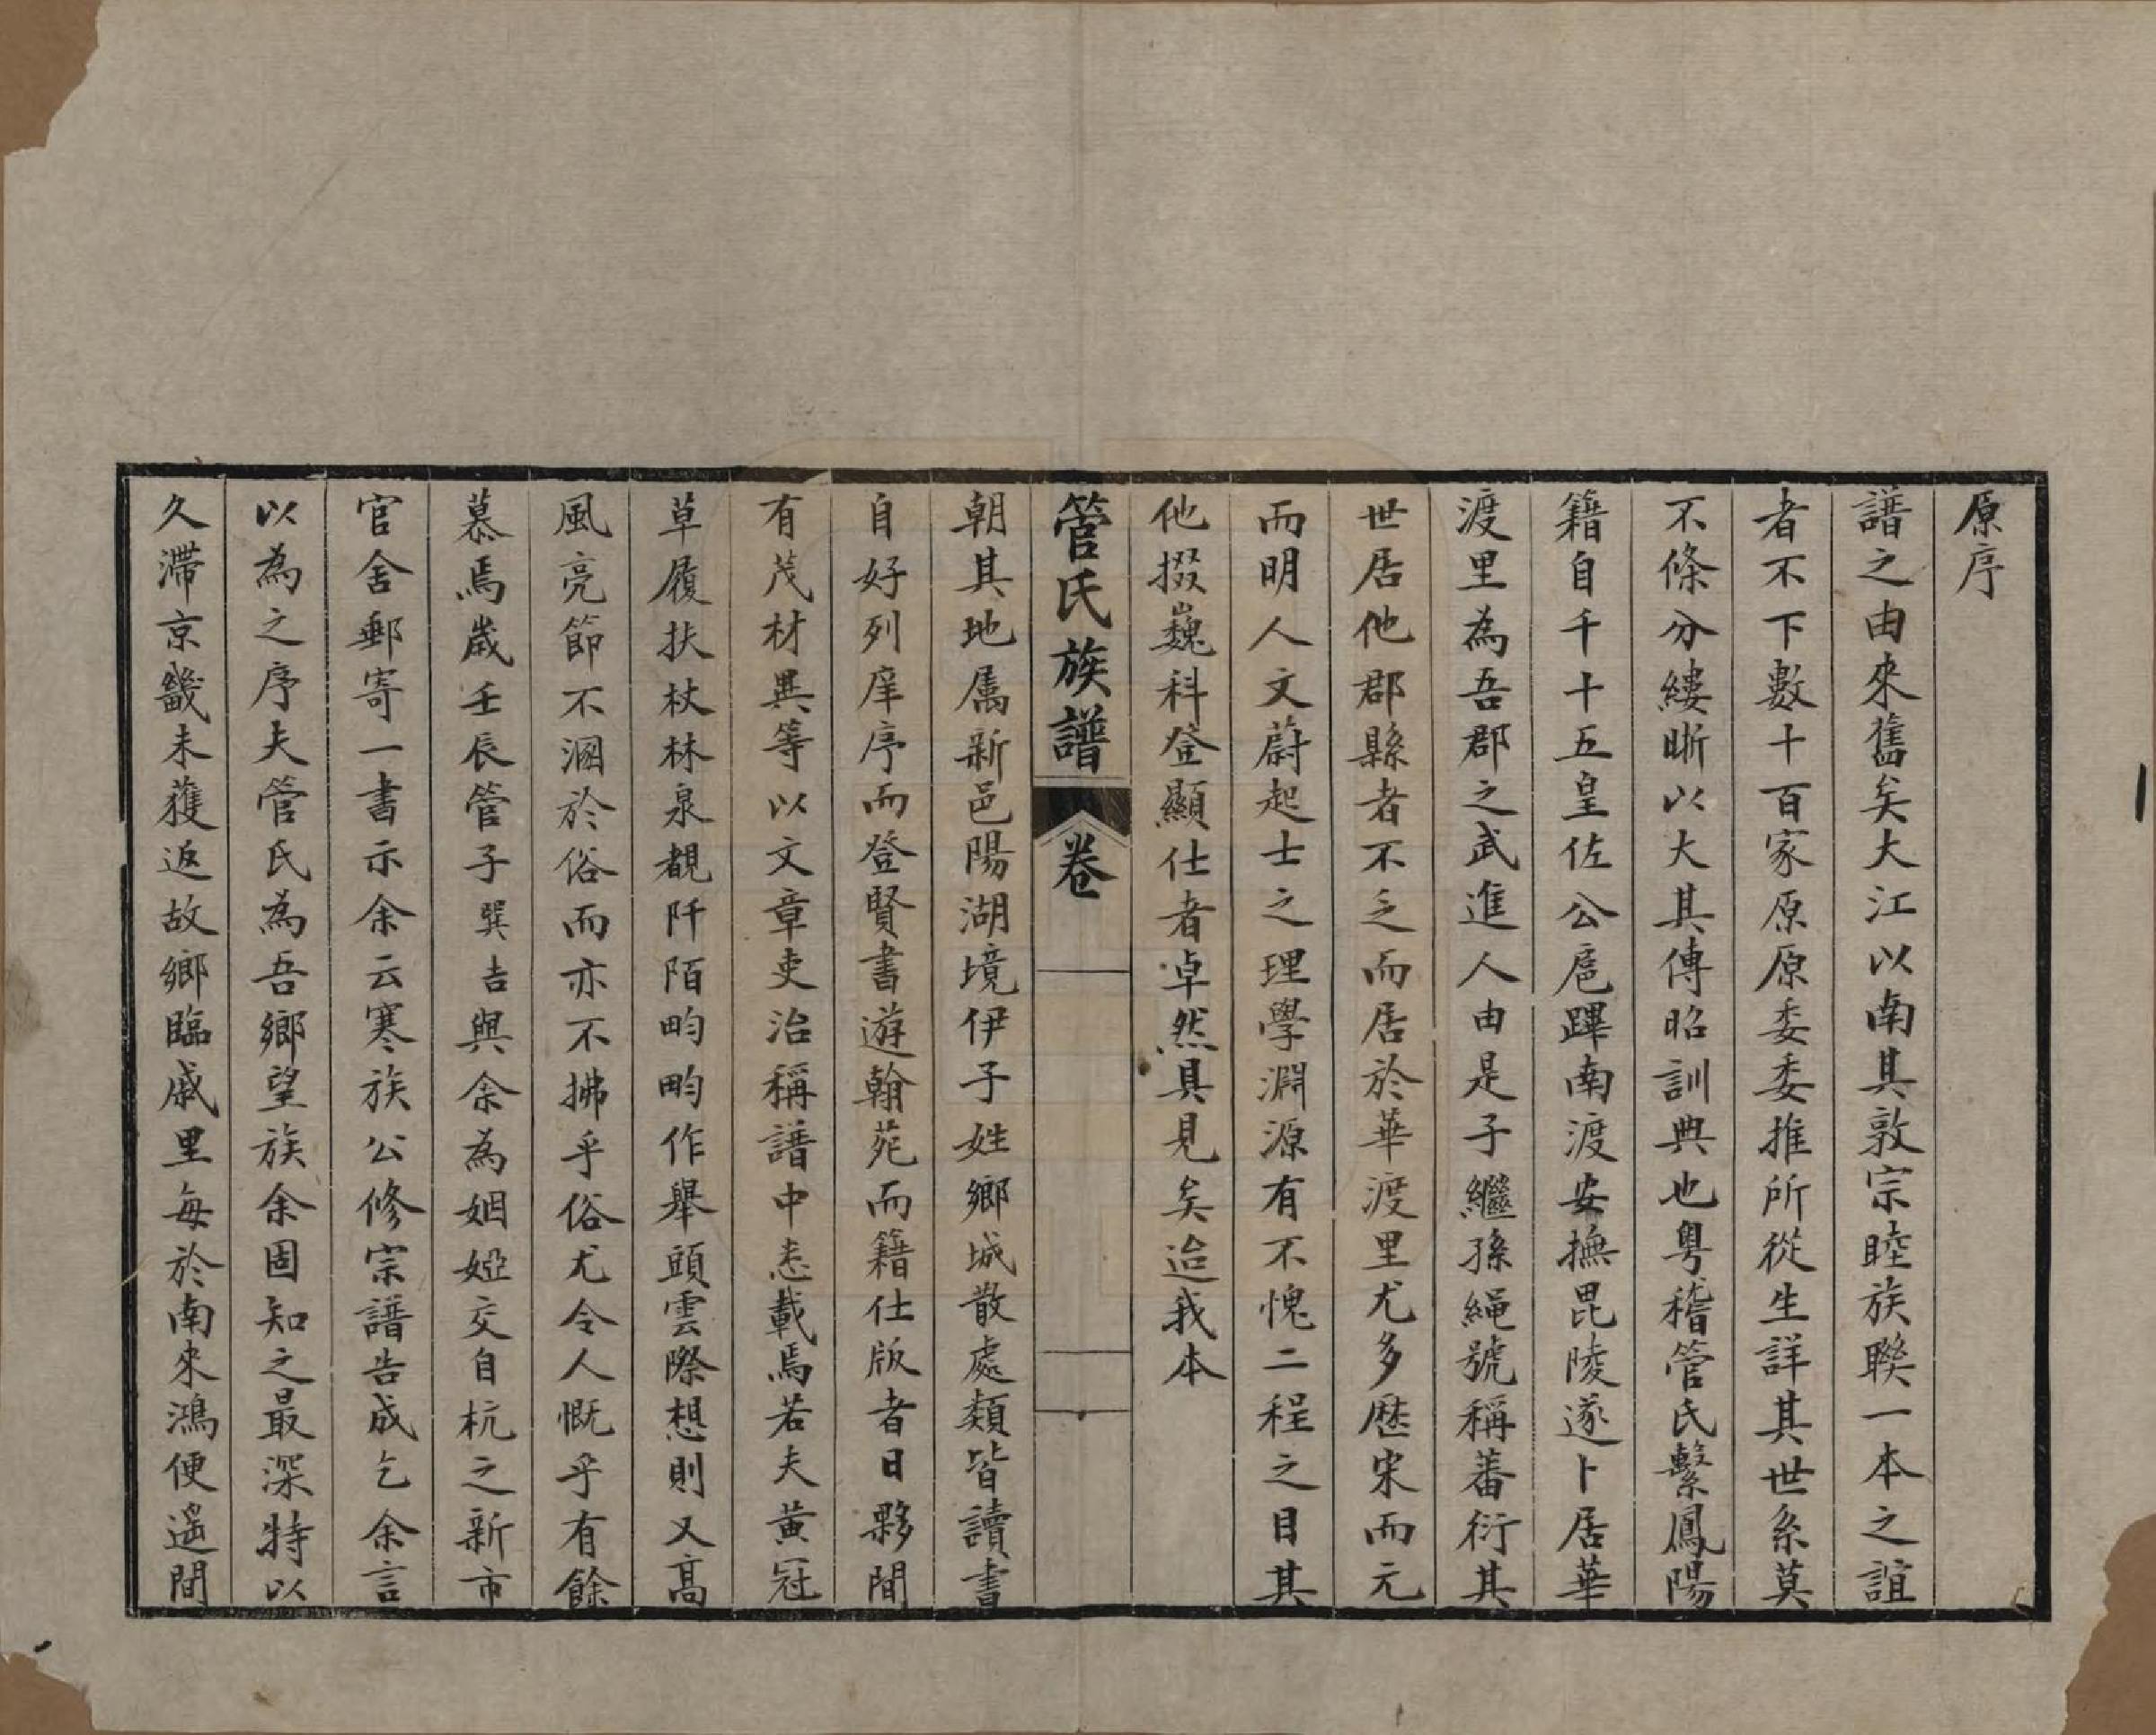 原序
譜之由來舊矣大江以南其敦宗睦族聯一本之誼
者不下數十百家原原委委推所從生詳其世系莫
不條分縷晰以大其傳昭訓典也粤稽管氏繫鳳陽
籍自千十五皇佐公扈蹕南渡安撫毘陵遂卜居華
渡里為吾郡之武進人由是子繼孫繩號稱蕃衍其
世居他郡縣者不乏而居於華渡里尤多歷宋而元
而明人文蔚起士之理學淵源有不愧二程之目其
他掇巍科登顯仕者卓然具見矣迨我本
管氏族譜 卷
朝其地属新邑陽湖境伊子姓鄉城散處類皆讀書
自好列庠序而登賢書遊翰苑而籍仕版者日夥間
有茂材異等以文章吏治稱譜中悉載焉若夫黃冠
草履扶杖林泉覩阡陌畇畇作舉頭雲際想則又高
風亮節不溷於俗而亦不拂乎俗尤令人慨乎有餘
慕焉歲壬辰管子巽吉與余為姻婭交自杭之新市
官舍郵寄一書示余云寒族公修宗譜告成乞余言
以為之序夫管氏為吾鄉望族余固知之最深特以
久滯京畿未獲返故鄉臨戚里每於南來鴻便遥聞